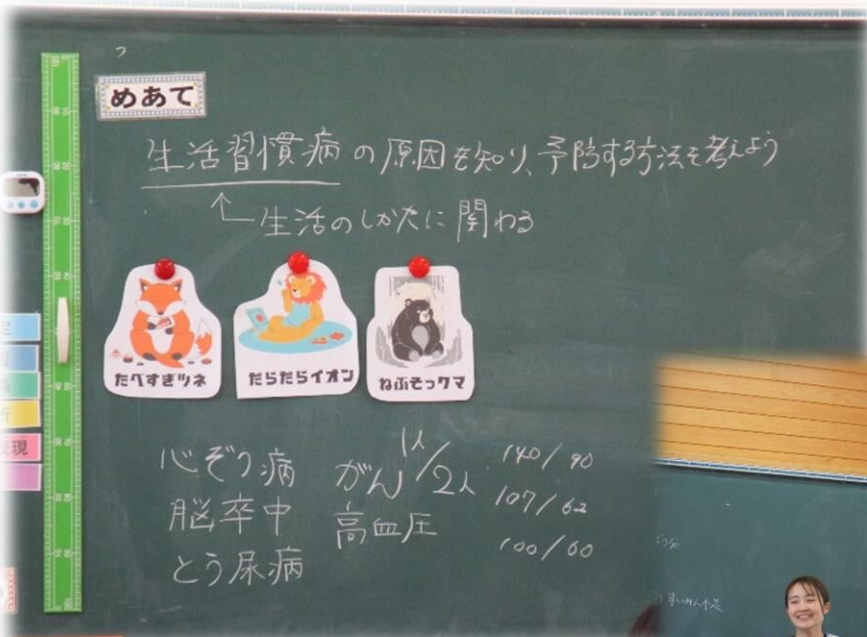 めあて
生活習慣病の原因を知り、予防する方法を考えよう
生活のしかたに関わる
たべすぎツネ
だらだらイオン
ねぶそックマ
心ぞう病
脳卒中
とう尿病
がん 1人/2人
高血圧
140/90
107/62
100/60
表現